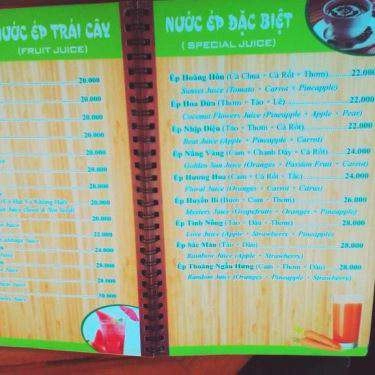 NƯỚC ÉP TRÁI CÂY
(FRUIT JUICE)
20.000
20.000
20.000
20.000
20.000
20.000
20.000
20.000
20.000
20.000
20.000
20.000
28.000
28.000
30.000
NƯỚC ÉP ĐẶC BIỆT
( SPECIAL JUICE )
Ép Hoàng Hôn (Cà Chua + Cà Rốt + Thơm) 22.000
Sunset Juice (Tomato + Carrot + Pineapple)
Ép Hoa Dừa (Thơm + Táo + Lê) 22.000
Coconut Flowers Juice (Pineapple + Apple + Pear)
Ép Nhịp Điệu (Táo + Thơm + Cà Rốt) 22.000
Beat Juice (Apple + Pineapple + Carrot)
Ép Nắng Vàng (Cam + Chanh Dây + Cà Rốt) 24.000
Golden Sun Juice (Oranges + Passion Fruit + Carrot)
Ép Hương Hoa (Cam + Cà Rốt + Tắc) 24.000
Floral Juice (Oranges + Carrot + Citrus)
Ép Huyền Bí (Bưởi + Cam + Thơm) 26.000
Mystery Juice (Grapefruit + Oranges + Pineapple)
Ép Tình Nồng (Táo + Dâu + Thơm) 28.000
Love Juice (Apple + Strawberry + Pineapple)
Ép Sắc Màu (Táo + Dâu) 28.000
Rainbow Juice (Apple + Strawberry)
Ép Thoáng Ngẫu Hứng (Cam + Thơm + Dâu) 28.000
Random Juice (Oranges + Pineapple + Strawberry)